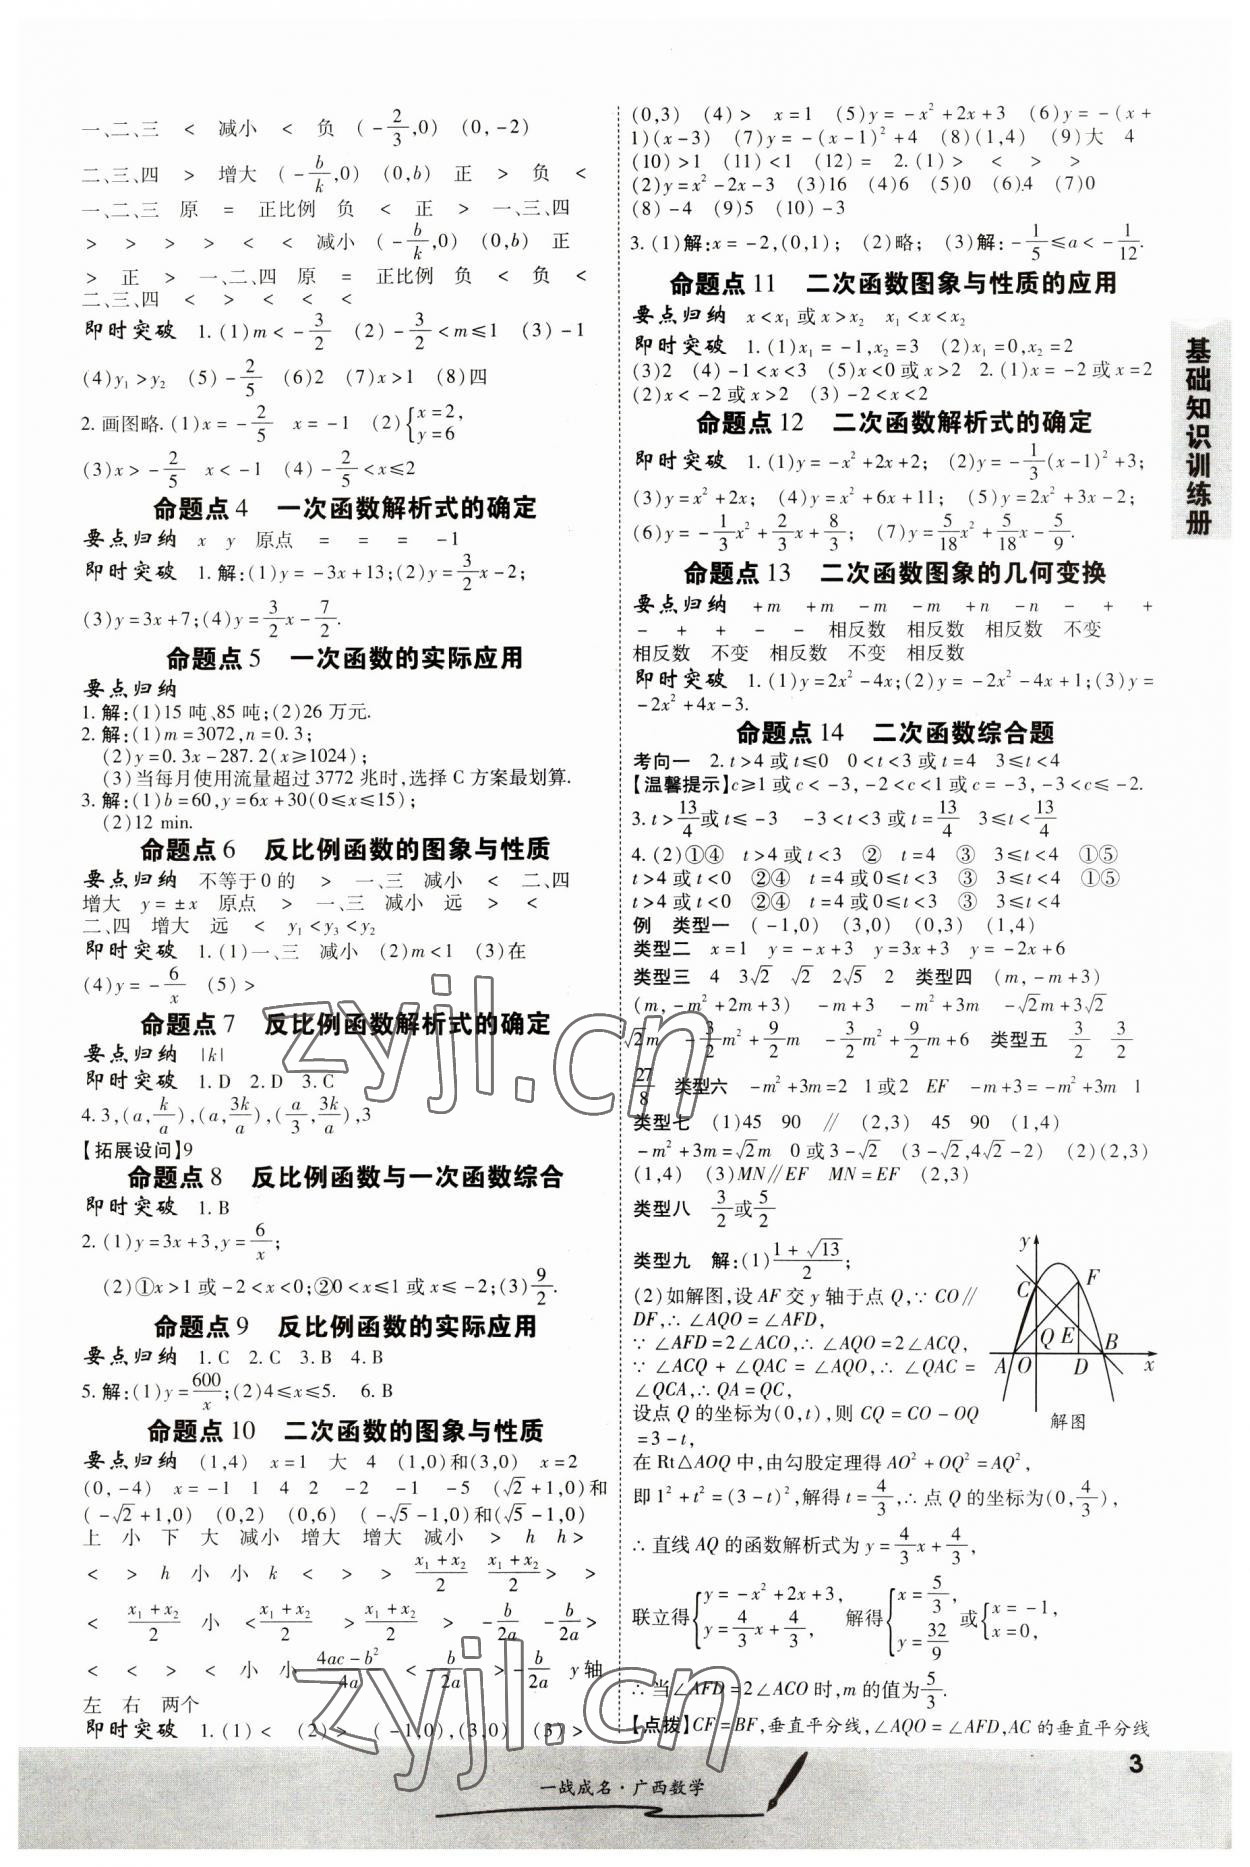 一、二、三 < 减小 < 负 (-2/3,0) (0,-2)
二、三、四 > 增大 (-b/k,0) (0,b) 正 > 负 <
一、二、三 原 = 正比例 负 < 正 > 一、三、四
> > > > < < 减小 (-b/k,0) (0,b) 正
> 正 > 一、二、四 原 = 正比例 负 < 负 <
二、三、四 < > < < <
即时突破 1.(1)m<-3/2 (2)-3/2<m≤1 (3)-1
(4)y₁>y₂ (5)-2/5 (6)2 (7)x>1 (8)四
2.画图略.(1)x=-2/5 x=-1 (2){x=2, y=6
(3)x>-2/5 x<-1 (4)-2/5<x≤2
命题点4 一次函数解析式的确定
要点归纳 x y 原点 = = = -1
即时突破 1.解:(1)y=-3x+13;(2)y=3/2x-2;
(3)y=3x+7;(4)y=3/2x-7/2.
命题点5 一次函数的实际应用
要点归纳
1.解:(1)15吨、85吨;(2)26万元.
2.解:(1)m=3072,n=0.3;
(2)y=0.3x-287.2(x≥1024);
(3)当每月使用流量超过3772兆时,选择C方案最划算.
3.解:(1)b=60,y=6x+30(0≤x≤15);
(2)12 min.
命题点6 反比例函数的图象与性质
要点归纳 不等于0的 > 一、三 减小 < 二、四
增大 y=±x 原点 > 一、三 减小 远 > <
二、四 增大 远 < y₁<y₃<y₂
即时突破 1.(1)一、三 减小 (2)m<1 (3)在
(4)y=-6/x (5)>
命题点7 反比例函数解析式的确定
要点归纳 |k|
即时突破 1.D 2.D 3.C
4.3,(a,k/a),(a,3k/a),(a/3,3k/a),3
【拓展设问】9
命题点8 反比例函数与一次函数综合
即时突破 1.B
2.(1)y=3x+3,y=6/x;
(2)①x>1或-2<x<0;②0<x≤1或x≤-2;(3)9/2.
命题点9 反比例函数的实际应用
要点归纳 1.C 2.C 3.B 4.B
5.解:(1)y=600/x;(2)4≤x≤5. 6.B
命题点10 二次函数的图象与性质
要点归纳 (1,4) x=1 大 4 (1,0)和(3,0) x=2
(0,-4) x=-1 1 4 2 -2 -1 -5 (√2+1,0)和
(-√2+1,0) (0,2) (0,6) (-√5-1,0)和(√5-1,0)
上 小 下 大 减小 增大 增大 减小 > h h>
< > h 小 小 k < > > (x₁+x₂)/2 (x₁+x₂)/2> >
< (x₁+x₂)/2 小 <(x₁+x₂)/2 >(x₁+x₂)/2 > -b/2a -b/2a>
< < > < 小 小 (4ac-b²)/4a <-b/2a >-b/2a y轴
左 右 两个
即时突破 1.(1)< (2)> (-1,0),(3,0) (3)>
(0,3) (4)> x=1 (5)y=-x²+2x+3 (6)y=-(x+
1)(x-3) (7)y=-(x-1)²+4 (8)(1,4) (9)大 4
(10)>1 (11)<1 (12)= 2.(1)> < > >
(2)y=x²-2x-3 (3)16 (4)6 (5)0 (6).4 (7)0
(8)-4 (9)5 (10)-3
3.(1)解:x=-2,(0,1); (2)略; (3)解:-1/5≤a<-1/12.
命题点11 二次函数图象与性质的应用
要点归纳 x<x₁或x>x₂ x₁<x<x₂
即时突破 1.(1)x₁=-1,x₂=3 (2)x₁=0,x₂=2
(3)2 (4)-1<x<3 (5)x<0或x>2 2.(1)x=-2或x=2
(2)x<-2或x>2 (3)-2<x<2
命题点12 二次函数解析式的确定
即时突破 1.(1)y=-x²+2x+2; (2)y=-1/3(x-1)²+3;
(3)y=x²+2x; (4)y=x²+6x+11; (5)y=2x²+3x-2;
(6)y=-1/3x²+2/3x+8/3; (7)y=5/18x²+5/18x-5/9.
命题点13 二次函数图象的几何变换
要点归纳 +m +m -m -m +n -n - + +
- + + - - 相反数 相反数 相反数 不变
相反数 不变 相反数 不变 相反数
即时突破 1.(1)y=2x²-4x;(2)y=-2x²-4x+1;(3)y=
-2x²+4x-3.
命题点14 二次函数综合题
考向一 2.t>4或t≤0 0<t<3或t=4 3≤t<4
【温馨提示】c≥1或c<-3,-2<c<1或c=-3,-3<c≤-2.
3.t>13/4或t≤-3 -3<t<3或t=13/4 3≤t<13/4
4.(2)①④ t>4或t<3 ② t=4 ③ 3≤t<4 ①⑤
t>4或t<0 ②④ t=4或0≤t<3 ③ 3≤t<4 ①⑤
t>4或t<0 ②④ t=4或0≤t<3 ③ 3≤t<4
例 类型一 (-1,0) (3,0) (0,3) (1,4)
类型二 x=1 y=-x+3 y=3x+3 y=-2x+6
类型三 4 3√2 √2 2√5 2 类型四 (m,-m+3)
(m,-m²+2m+3) -m+3 -m²+3m -√2m+3√2
√2m -3/2m²+9/2m -3/2m²+9/2m+6 类型五 3/2 3/2
27/8 类型六 -m²+3m=2 1或2 EF -m+3=-m²+3m 1
类型七 (1)45 90 ∥ (2,3) 45 90 (1,4)
-m²+3m=√2m 0或3-√2 (3-√2,4√2-2) (2)(2,3)
(1,4) (3)MN∥EF MN=EF (2,3)
类型八 3/2或5/2
类型九 解:(1)(1+√13)/2;
(2)如解图,设AF交y轴于点Q,∵CO∥
DF,∴∠AQO=∠AFD,
∵∠AFD=2∠ACO,∴∠AQO=2∠ACQ,
∵∠ACQ+∠QAC=∠AQO,∴∠QAC=
∠QCA,∴QA=QC,
设点Q的坐标为(0,t),则CQ=CO-OQ
=3-t,
在Rt△AOQ中,由勾股定理得AO²+OQ²=AQ²,
即1²+t²=(3-t)²,解得t=4/3,∴点Q的坐标为(0,4/3),
∴直线AQ的函数解析式为y=4/3x+4/3,
联立得{y=-x²+2x+3, y=4/3x+4/3, 解得{x=5/3, y=32/9 或{x=-1, x=0,
∴当∠AFD=2∠ACO时,m的值为5/3.
【点拨】CF=BF,垂直平分线,∠AQO=∠AFD,AC的垂直平分线
y
C
F
Q
E
A
O
D
B
x
解图
基础知识训练册
zyjl.cn
zyjl.cn
一战成名·广西数学
3